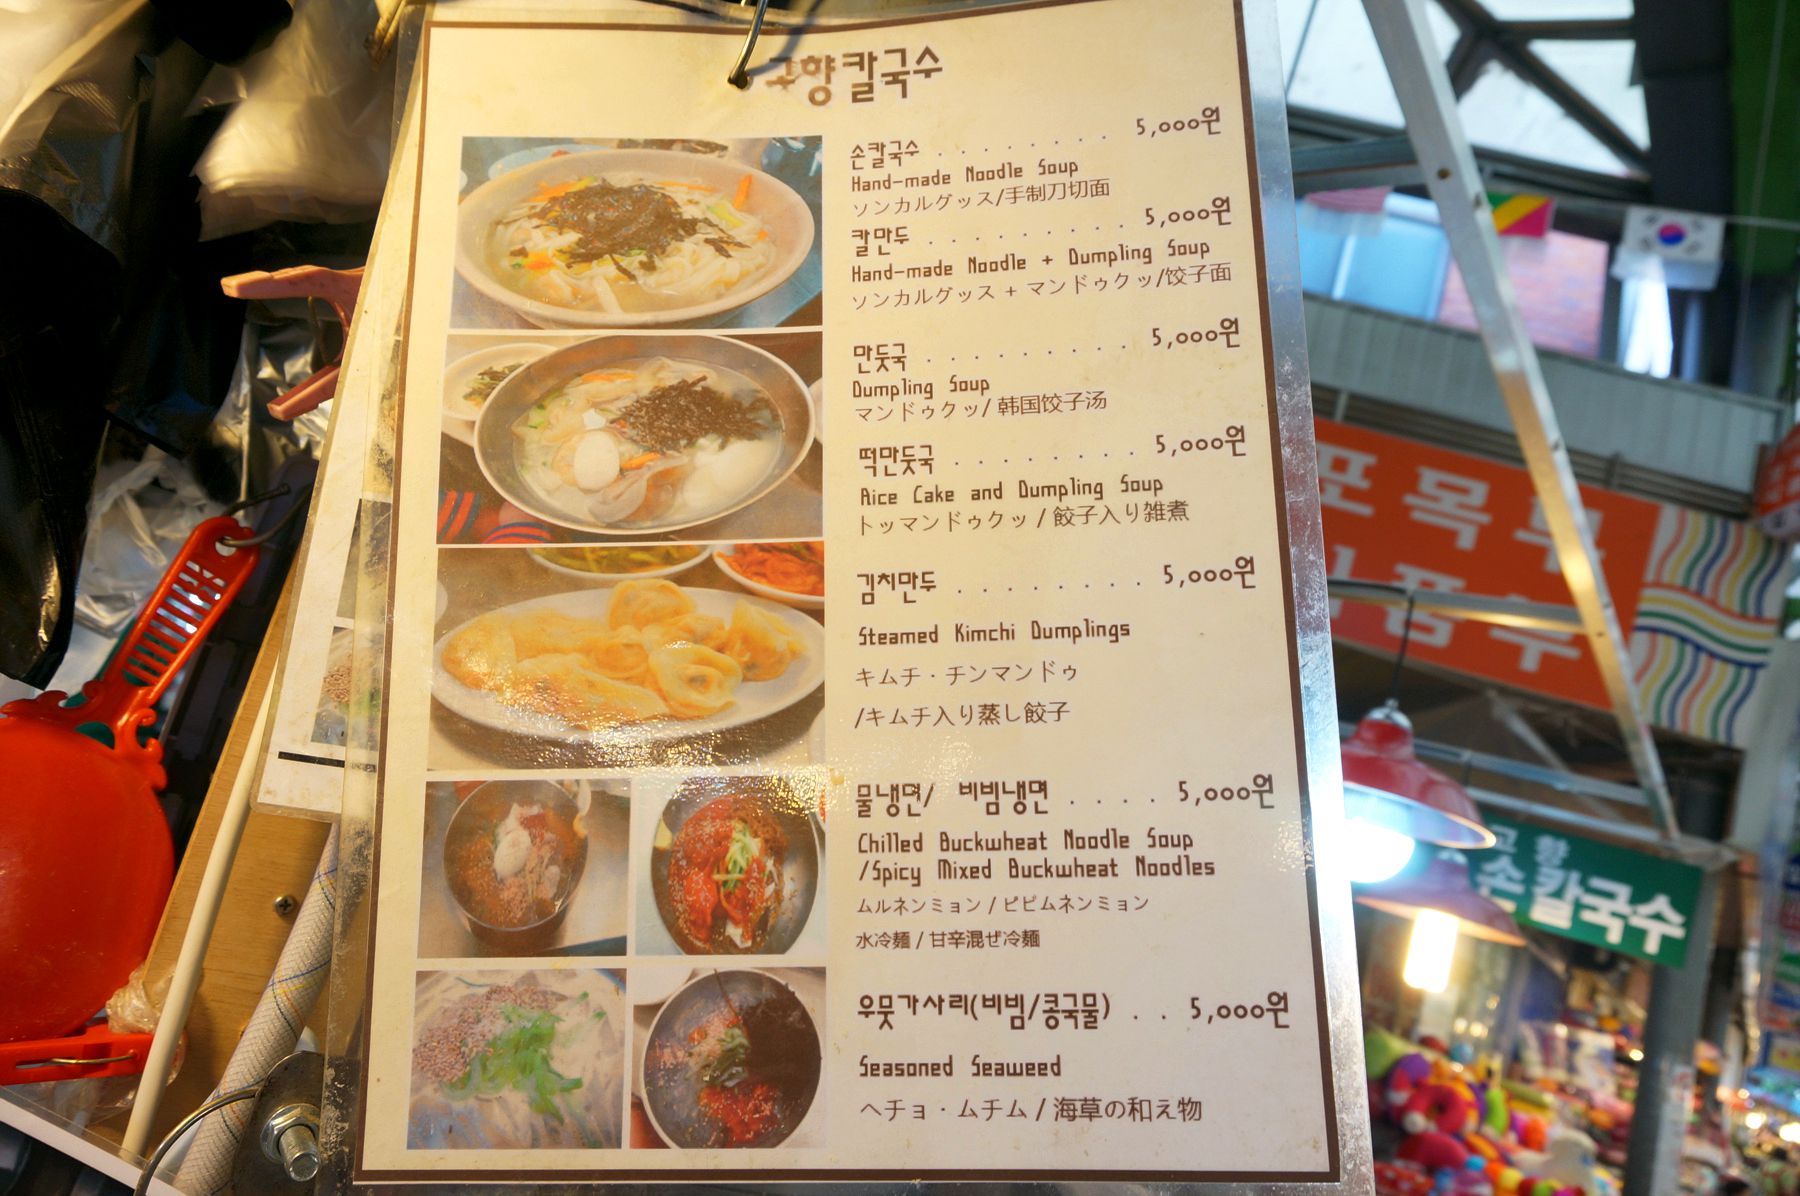 고향칼국수
손칼국수 . . . . . . . . . 5,000원
Hand-made Noodle Soup
ソンカルグッス/手制刀切面
칼만두 . . . . . . . . . 5,000원
Hand-made Noodle + Dumpling Soup
ソンカルグッス + マンドゥクッ/饺子面
만둣국 . . . . . . . . . 5,000원
Dumpling Soup
マンドゥクッ/ 韩国饺子汤
떡만둣국 . . . . . . . . 5,000원
Rice Cake and Dumpling Soup
トッマンドゥクッ / 餃子入り雑煮
김치만두 . . . . . . . . 5,000원
Steamed Kimchi Dumplings
キムチ・チンマンドゥ
/キムチ入り蒸し餃子
물냉면/ 비빔냉면 . . . . 5,000원
Chilled Buckwheat Noodle Soup
/Spicy Mixed Buckwheat Noodles
ムルネンミョン / ビビムネンミョン
水冷麺 / 甘辛混ぜ冷麺
우뭇가사리(비빔/콩국물) . . 5,000원
Seasoned Seaweed
ヘチョ・ムチム / 海草の和え物
포목부
고향
손칼국수